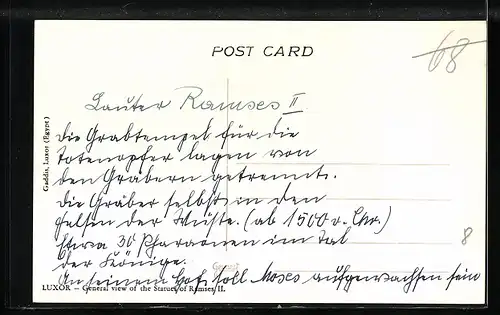 POST CARD
68
Lauter Ramses II
die Grabtempel für die
Totenopfer lagen von
den Gräbern getrennt.
die Gräber selbst in den
Felsen der Wüste. (ab 1500 v. Chr.)
Etwa 30 Pharaonen im Tal
der Könige.
8
An seinem Hof soll Moses aufgewachsen sein
LUXOR – General view of the Statues of Ramses II.
Gaddis, Luxor (Egypt)